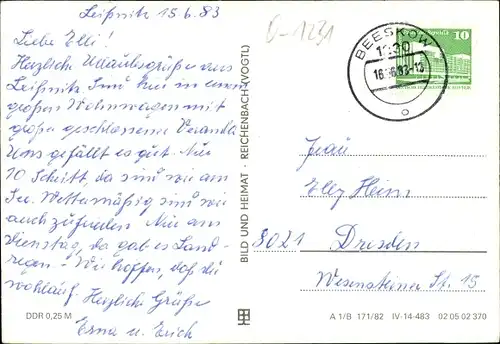 Leißnitz 15.6.83
Liebe Elli!
Herzliche Urlaubsgrüße aus
Leißnitz. Sind hier in einem
großen Wohnwagen mit
große geschlossene Veranda.
Uns gefällt es gut. Nur
10 Schritt, da sind wir am
See. Wettermäßig sind wir
auch zufrieden. Nur am
Dienstag, da gab es Land-
regen - Wir hoffen, daß du
wohlauf. Herzliche Grüße
Erna u. Erich
DDR 0,25 M
BILD UND HEIMAT · REICHENBACH (VOGTL)
D-1231
BEESKOW
1230
16.-6.83-13
10
Frau
Elly Heim
8021 Dresden
Wesensteiner Str. 15
A 1/B 171/82 IV-14-483 02 05 02 370